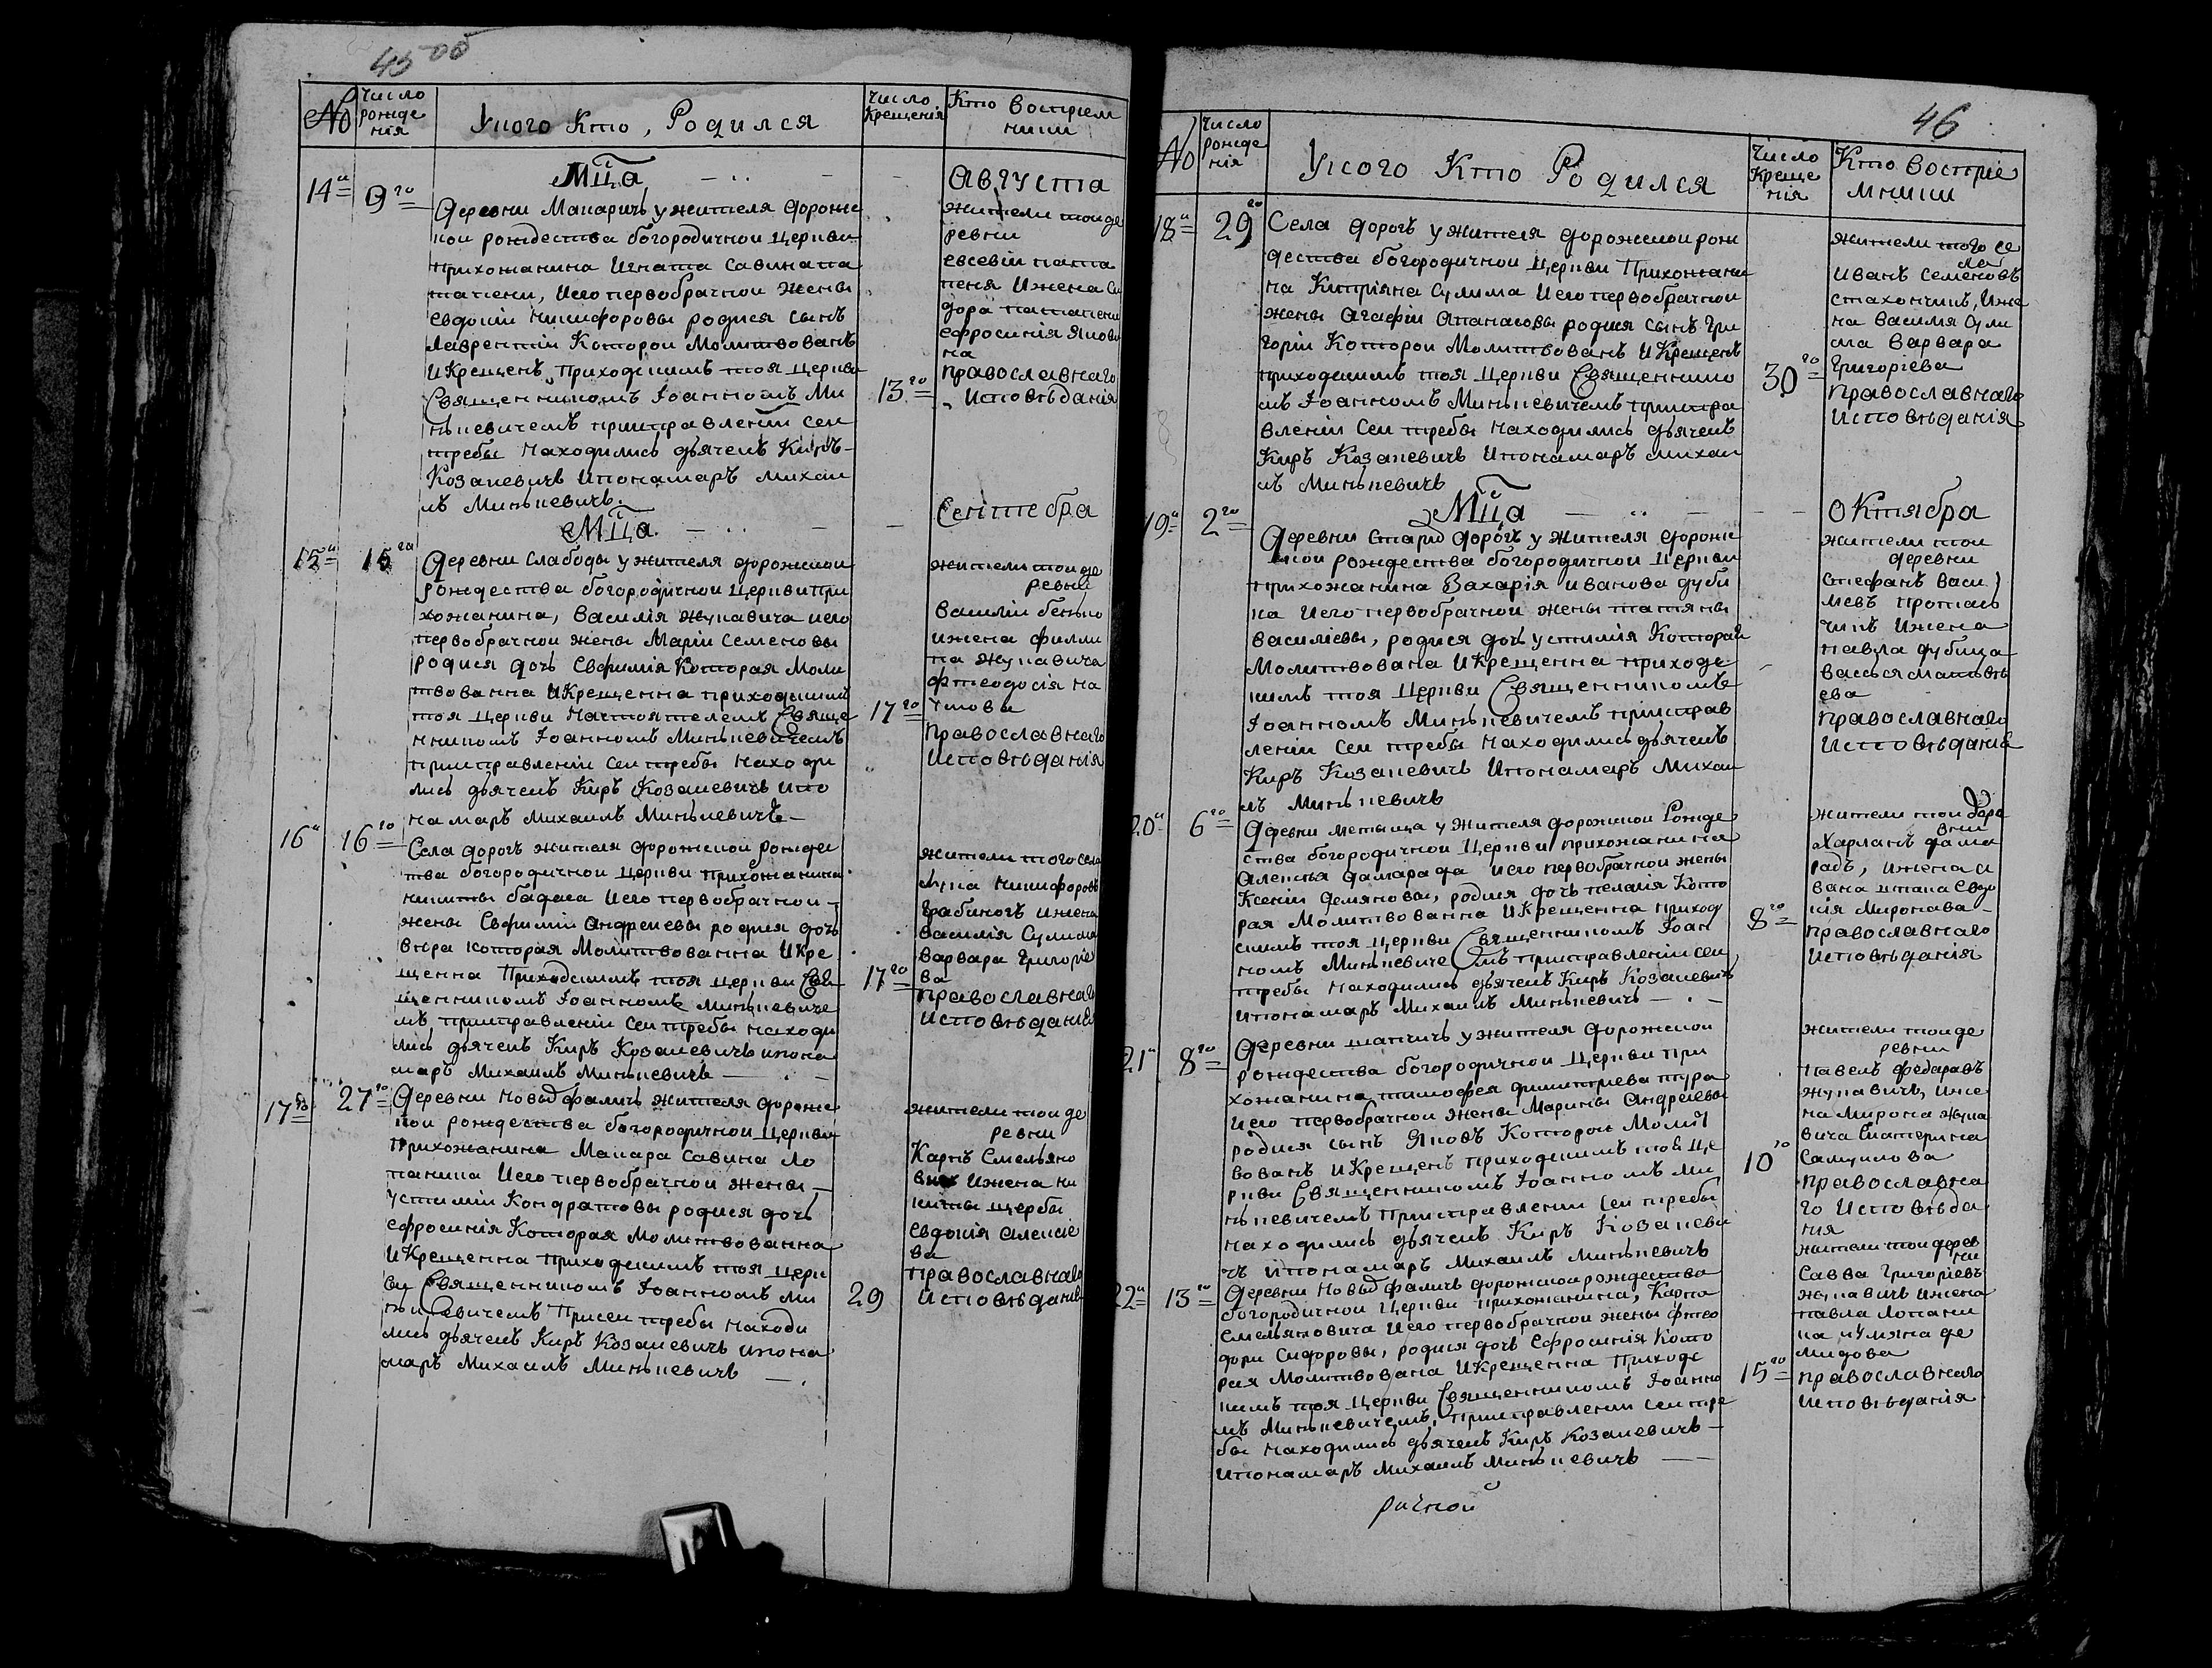 45 об
№
Число рождения
Укого Кто, Родился
Число Крещенія
Кто Востриемники
Мца
Августа
14а
9го
Деревни Макаричъ ужителя дорожс
кои рождества богородичнои церкви
прихожанина Игната Савина па
тапени, Иего первобрачнои жены
евдокіи никифоровы родися сынъ
Лаврентіи Которои Молитвованъ
ИКрещенъ, Приходскимъ тоя церкви
Священникомъ Іоанномъ Ми
нькевичемъ приисправленіи сеи
требы Находились дьячекъ Киръ
Козакевичъ Ипонамаръ михаи
лъ Минькевичъ.
13го
жители тоиде
ревни
евсевіи пата
пеня Ижена Си
дора патапени
ефросинія Яково
ва
православнаго
Исповѣданія
Мца
Сентебра
15а
15го
Деревни Слабоды ужителя дорожскои
рождества богородичнои церквипри
хожанина, Василія жукавича иего
первобрачнои жены Маріи семеновы
родися дочь Евфимія Которая Моли
твованна ИКрещенна приходскимъ
тоя церкви Настоятелемъ Свяще
нникомъ Іоанномъ Минькевичемъ
приисправленіи сеитребы нахо ди
лись дьячекъ Киръ Козакевичъ ипо
намаръ михаилъ Минькевичъ —
17го
жители тоиде
ревни
Василіи бенько
ижена филли
па жукавича
фтеодосія На
умова
православнаго
Исповѣданія
16а
16го
Села дорогъ жителя дорожскои рождес
тва богородичнои церкви прихожанина
никиты бадака Иего первобрачнои
жены Евфиміи Андреевы родися дочь
вѣра которая Молитвованна ИКре
щенна Приходскимъ тоя церкви Свя
щенникомъ Іоанномъ минькевиче
мъ, приисправленіи сеи требы находи
лись дьячекъ Киръ Козакевичъ ипона
маръ Михаилъ Минькевичъ
17го
жители того села
лука никифоровъ
Грабинскъ ижена
василія Сулима
варвара Григорие
ва
православнаго
Исповѣданія
17го
27го
Деревни новыдфаличъ жителя дорожс
кои рождества богородичнои церкви
Прихожанина Макара Савина Ло
пакина Иего первобрачнои жены
устиміи Кондратовы родися дочь
ефросинія Которая Молитвованна
ИКрещенна Приходскимъ тоя церк
ви Священникомъ Іоанномъ ми
нькевичемъ Присеи требы находи
лись дьячекъ Киръ Козакевичъ ипона
маръ Михаилъ Минькевичъ
29
жители тоиде
ревни
Карпъ Емельяно
Ижена ни
киты щербы
евдокія Алексіе
ва
православнаго
Исповѣданія
46
№
Число рождения
Укого Кто Родился
Число Крещенія
Кто Востриемники
18а
29го
Села дорогъ ужителя дорожскои рож
дества богородичнои церкви Прихожани
на Кипріяна сулима Иего первобрачнои
жены Агафіи Апанасовы родися сынъ Гри
горіи Которои Молитвованъ ИКрещенъ
приходскимъ тоя церкви Священнико
мъ Іоанномъ Минькевичемъ приистра
вленіи сеи требы находились дьячекъ
Киръ Козакевичъ Ипонамаръ михаи
лъ Минькевичъ
30го
жители того се
ла
Иванъ Семеновъ
Ижe
на василія сули
ма варвара
Григоріева
Православнаго
Исповѣданія
Мца
Октября
19а
2го
Деревни Стары дорогъ ужителя дорожс
кои рождества богородичнои церкви
прихожанина Захарія иванова дуби
на Иего первобрачнои жены татяны
василіевы, родися дочь устимія Которая
Молитвована ИКрещенна приходс
кимъ тоя церкви Священникомъ
Іоанномъ Минькевичемъ приистрав
леніи сеи требы находились дьячекъ
Киръ Козакевичъ Ипонамаръ Михаи
лъ Минькевичъ
жители тои
деревни
Стефанъ Васи
левъ протась
Ижена
павла дубица
Матвѣ
ева
православнаго
Исповѣданія
20а
6го
Деревни метыща ужителя дорожскои Рожде
ства богородичнои Церкви прихожанина
Алексѣя дамарада Иего первобрачнои жены
Ксеніи демяновы, родися дочь пелагія Кото
рая Молитвованна ИКрещенна приход
скимъ тоя церкви Священникомъ Іоан
номъ Минькевичемъ приисправленіи сеи
требы находились дьячекъ Киръ Козакевичъ
ипонамаръ Михаилъ Минькевичъ
8го
жители тои дере
вни
Харланъ дама
радъ, ижена и
вана евдо
кія Миронава
православнаго
Исповѣданія
21а
8го
Деревни шапчичъ ужителя дорожскои
рождества богородичнои церкви при
хожанина тимофея димитріева тура
Иего первобрачнои жены Марины Андреевы
родися сынъ Яковъ Которои Молит
вованъ ИКрещенъ приходскимъ тоя Це
ркви Священникомъ Іоанномъ Ми
нькевичемъ Приисправленіи сеи требы
находились дьячекъ Киръ Козакеви
чъ Ипонамаръ Михаилъ Минькевичъ
10го
жители тоиде
ревни
павелъ федаравъ
жукавичъ, иже
на мирона жука
вича Екатерина
Самуилова
православна
го Исповѣда
нія
22а
13го
Деревни новыдфаличъ дорожскои рождества
богородичнои церкви прихожанина, Карпа
емельяновича Иего первобрачнои жены фтео
доры сидоровы, родися дочь Ефросинія Кото
рая Молитвована ИКрещенна Приходс
кимъ тоя церкви Священникомъ Іоанно
мъ Минькевичемъ, приисправленіи сеи тре
бы находились дьячекъ Киръ Козакевичъ
ипонамаръ михаилъ Минькевичъ
15го
жители тои дерев
ни
Савва Григоріевъ
жукавичъ ижена
павла лопаки
на улияна де
мидова
православнаго
Исповѣданія